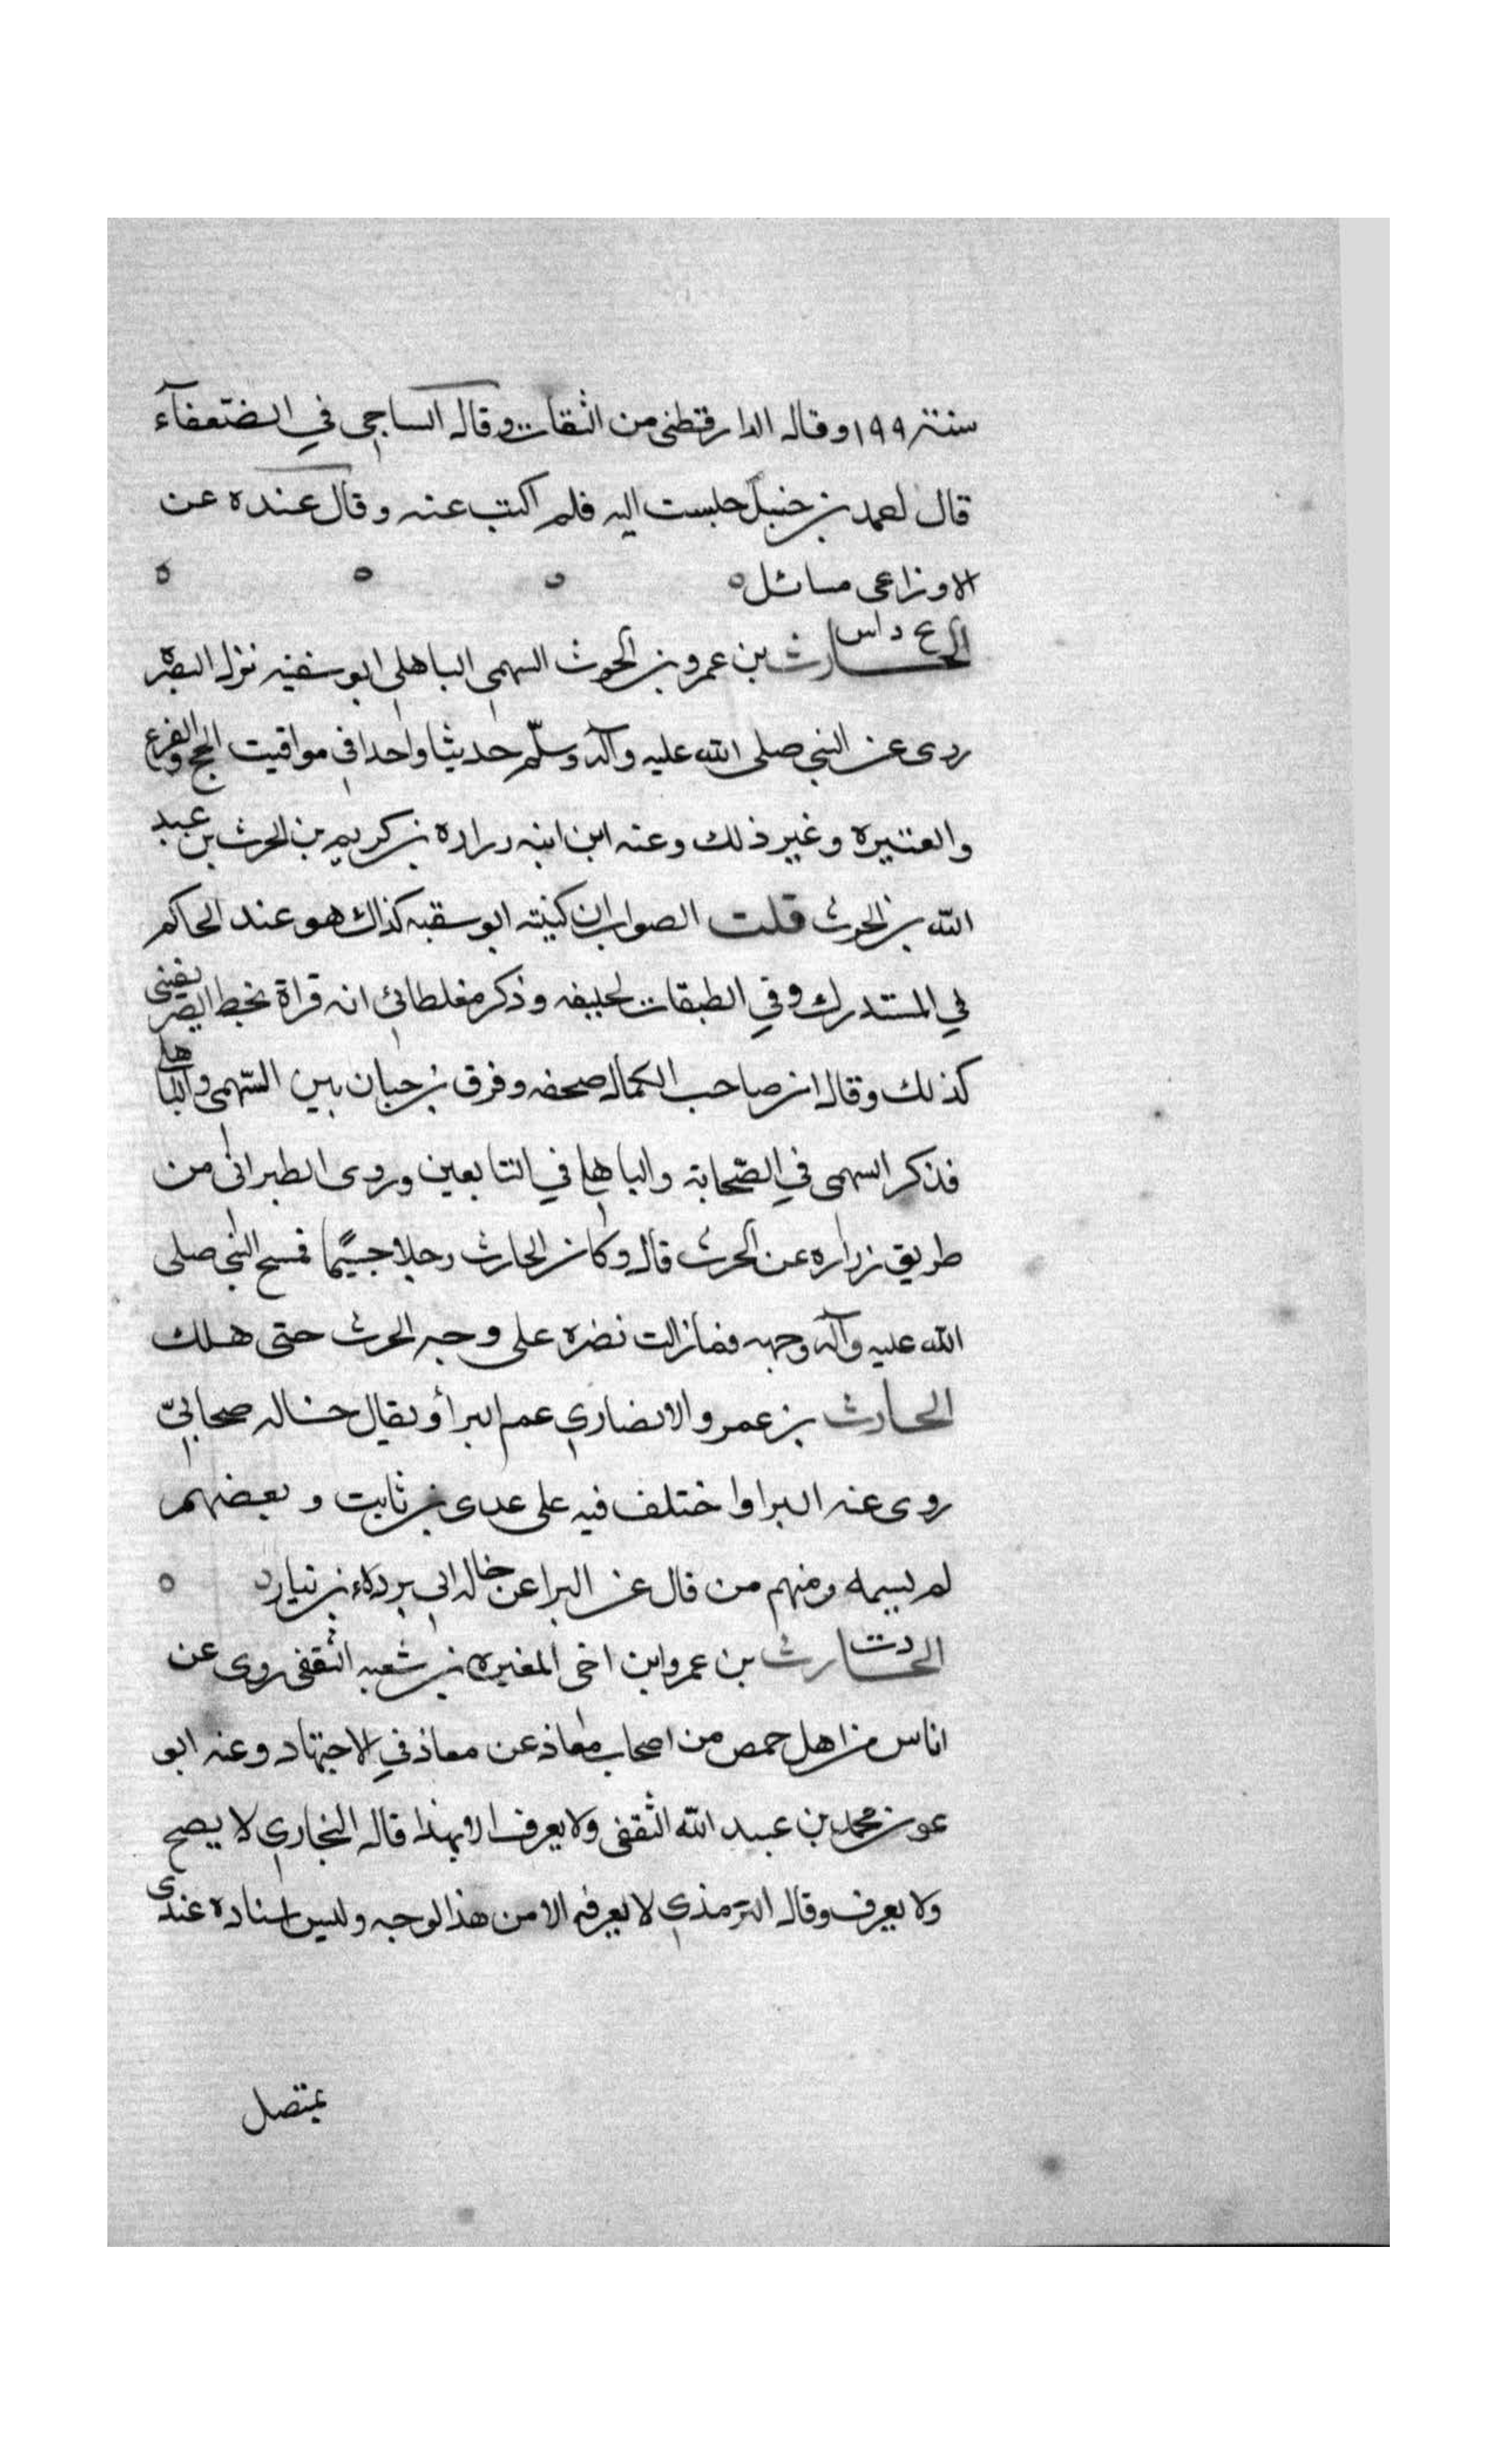 سنة ١٩٩ وقال الدارقطنى من الثقات وقال الساجى في الضعفآء
قال احمد بن حنبل جلست اليه فلم اكتب عنه وقال عنده عن
الاوزاعى مسائل ه ه ه ه
بخ د س
الحارث بن عمرو بن الحرث السهمى الباهلى ابو سفينه نزل البصره
روى عن النبي صلى الله عليه وآله وسلّم حديثا واحدا في مواقيت الحج والفرع
والعتيره وغير ذلك وعنه ابن ابنه زراره بن كريم بن الحرث بن عبد
الله بن الحرث قلت الصواب ان كنيته ابو سقبه كذاك هو عند الحاكم
في المستدرك وفي الطبقات لخليفه وذكر مغلطائى انه قراة بخط الصريفينى
كذلك وقال ان صاحب الكمال صحفه وفرق بن حبان بين السّهمى والباهلى
فذكر السهمى في الصّحابة والباهلي في التابعين وروى الطبرانى من
طريق زراره عن الحرث قال وكان الحارث رجلا جسيمًا فمسح النبي صلى
الله عليه وآله وجهه فمازالت نضره على وجه الحرث حتى هلك
الحارث بن عمرو الانصاري عم البرأ ويقال خاله صحابيّ
روى عنه البرا واختلف فيه على عدى بن ثابت وبعضهم
لم يسمه ومنهم من قال عن البرا عن خاله ابي برده بن نيار د ه
د ت
الحارث بن عمرو ابن اخى المغيره بن شعبه الثقفى روى عن
اناس من اهل حمص من اصحاب معاذ عن معاذ في الاجتهاد وعنه ابو
عون محمد بن عبيد الله الثقفى ولا يعرف الا بهذا قال البخاري لا يصح
ولا يعرف وقال الترمذي لا يعرفه الا من هذا لوجه وليس اسناده عندى
بمتصل